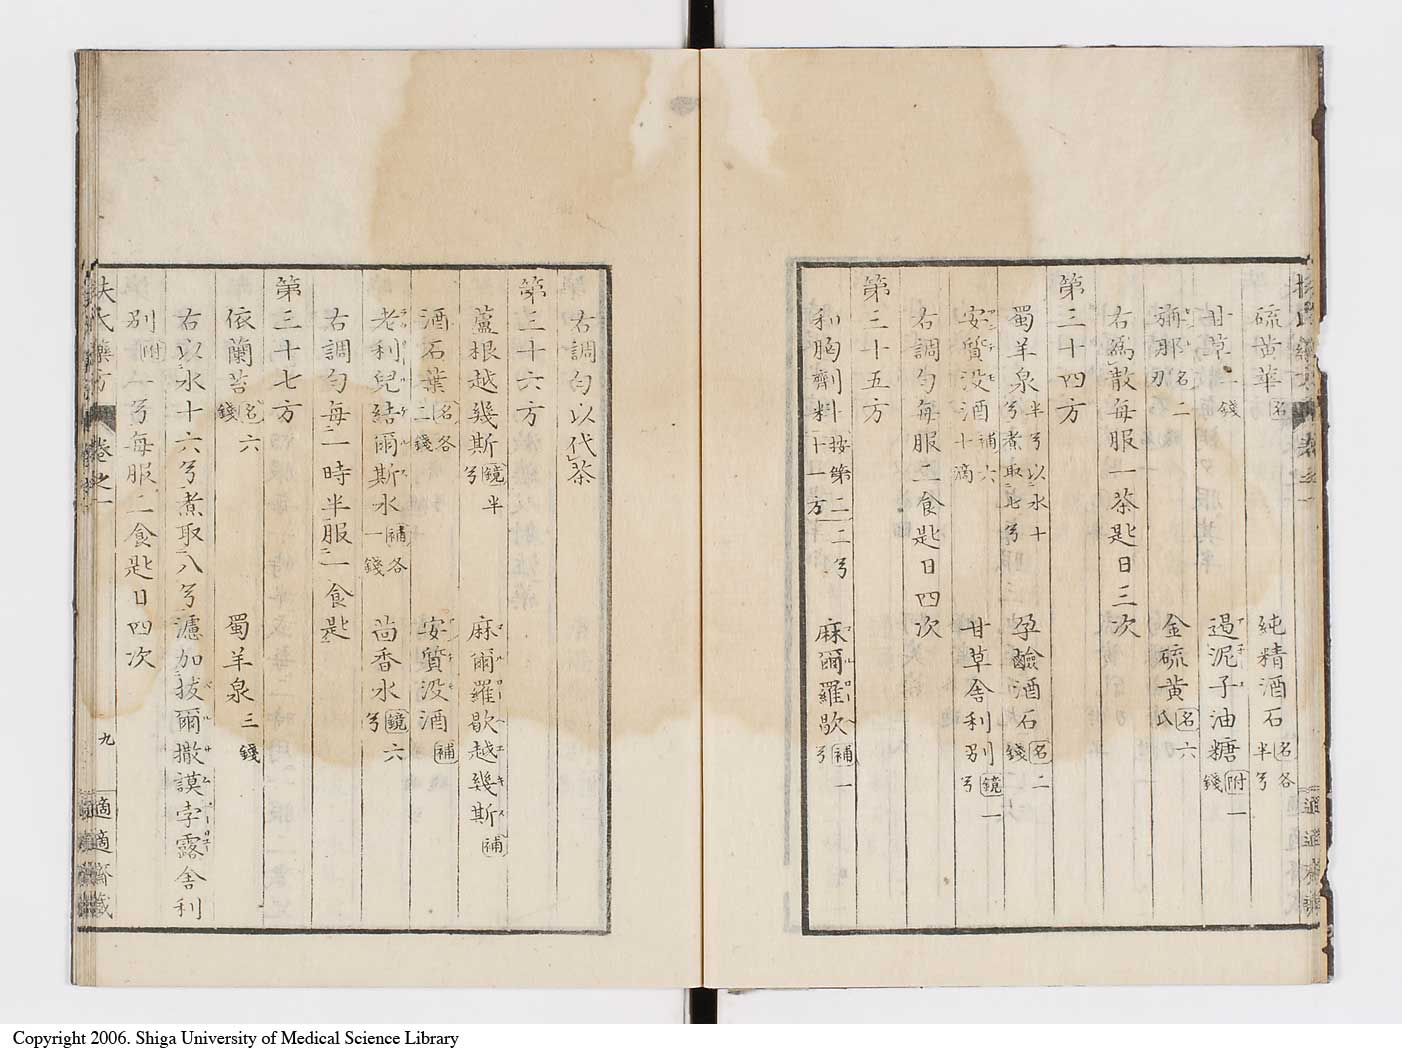 硫黄華名 純精酒石名各半兮
甘草一錢 過泥子油糖附一錢
彌那名二刃 金硫黄名六氏
右為散毎服一茶匙日三次
第三十四方
蜀羊泉半兮以水十兮煮取七兮 孕鹼酒石名二錢
安質没酒補六十滴 甘草舎利別鏡一兮
右調匀毎服二食匙日四次
第三十五方
利胸劑料按第二十一方二兮 麻爾羅歇補一兮
右調匀以代茶
第三十六方
蘆根越幾斯鏡半兮 麻爾羅歇越幾斯補
酒石葉名各二錢 安質没酒補
老利兒結爾斯水補各一錢 茴香水鏡六兮
右調匀毎一時半服一食匙
第三十七方
依蘭苔名六錢 蜀羊泉三錢
右以水十六兮煮取八兮濾加拔爾撒謨孛露舎利
別附一兮毎服二食匙日四次
扶氏藥方 卷之一 九 適適齋藏
Copyright 2006. Shiga University of Medical Science Library